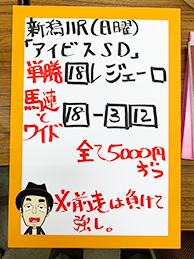 新潟11R(日曜)
「アイビスSD」
単勝 18 レジェーロ
馬連とワイド 18-3 12
全て5000円ずつ
※前走は負けて強し。